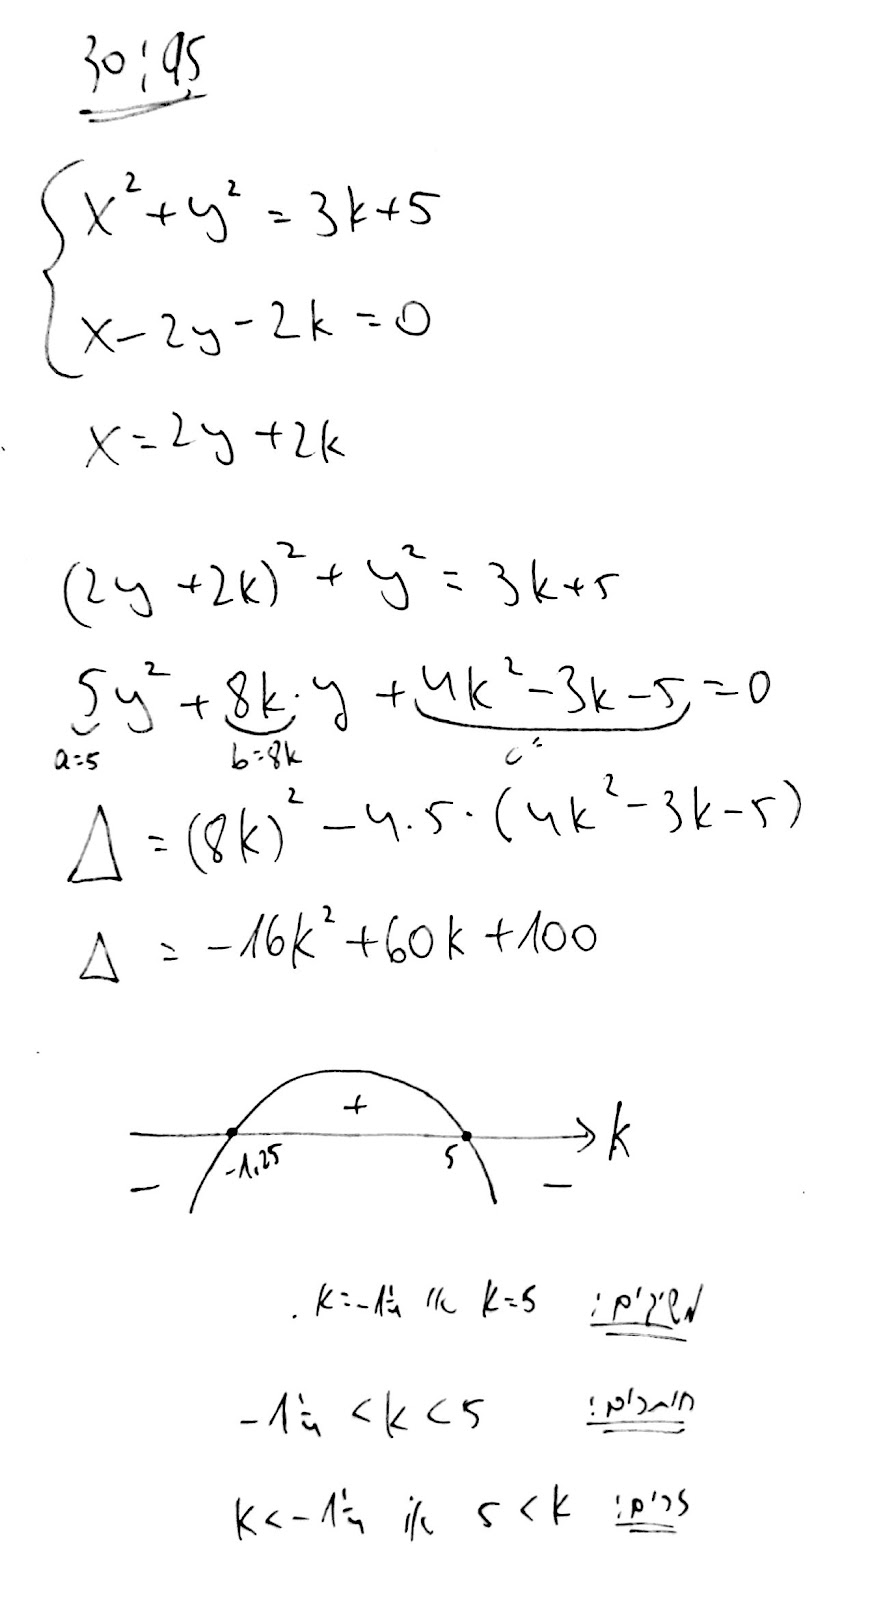 30:95
x² + y² = 3k+5
x - 2y - 2k = 0
x = 2y + 2k
(2y + 2k)² + y² = 3k+5
5y² + 8k·y + 4k² - 3k - 5 = 0
a=5 b=8k c=
Δ = (8k)² - 4·5·(4k² - 3k - 5)
Δ = -16k² + 60k + 100
+
k
-1.25 5
- -
משיקים: k=5 או k=-1¼.
חותכים: -1¼ < k < 5
זרים: 5 < k או k < -1¼